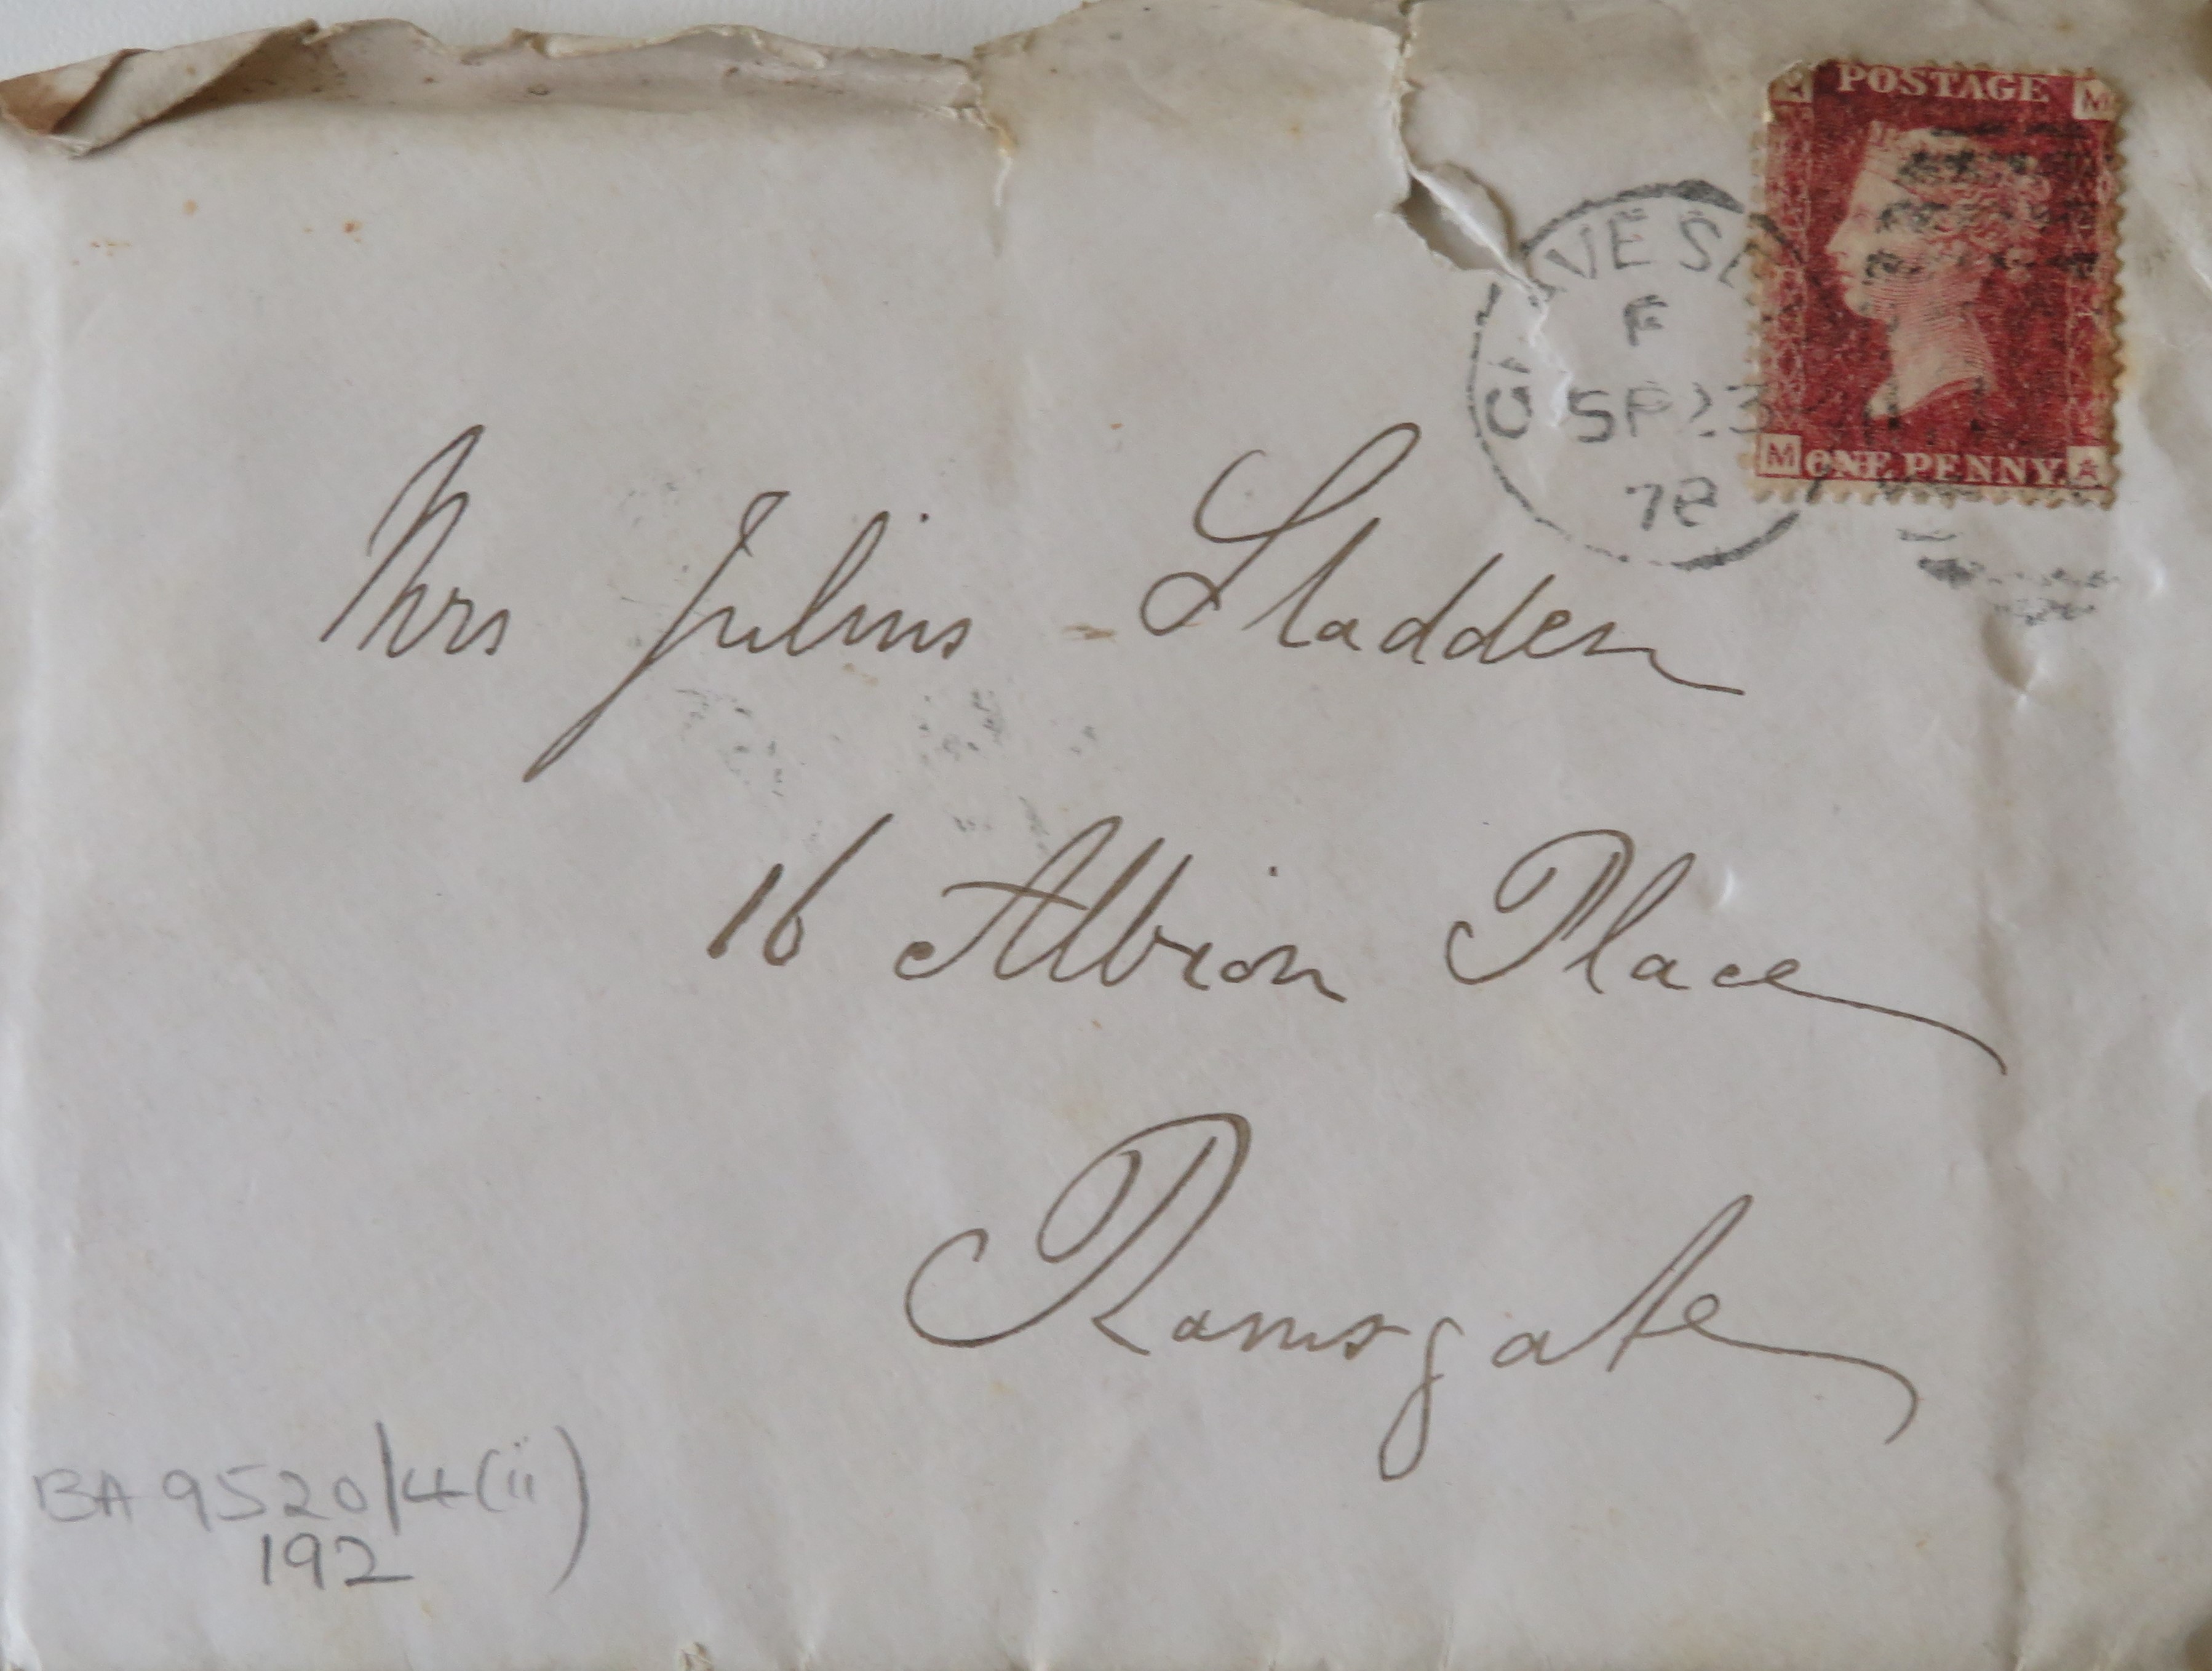 POSTAGE
M
F
SP 23
78
M ONE PENNY. A
Mrs Julius Sladden
16 Albion Place
Ramsgate
BA 9520/4(ii)
192